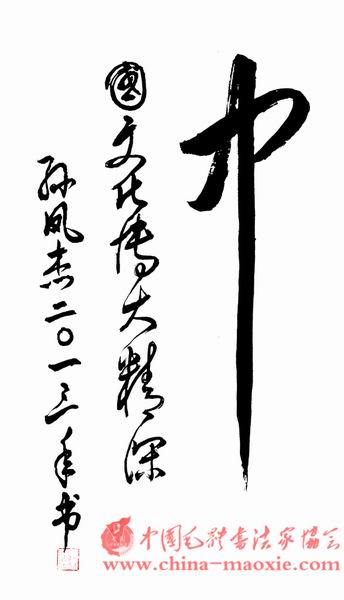 中
國文化博大精深
孙凤杰二〇一三年书
中国毛体书法家协会
www.china-maoxie.com